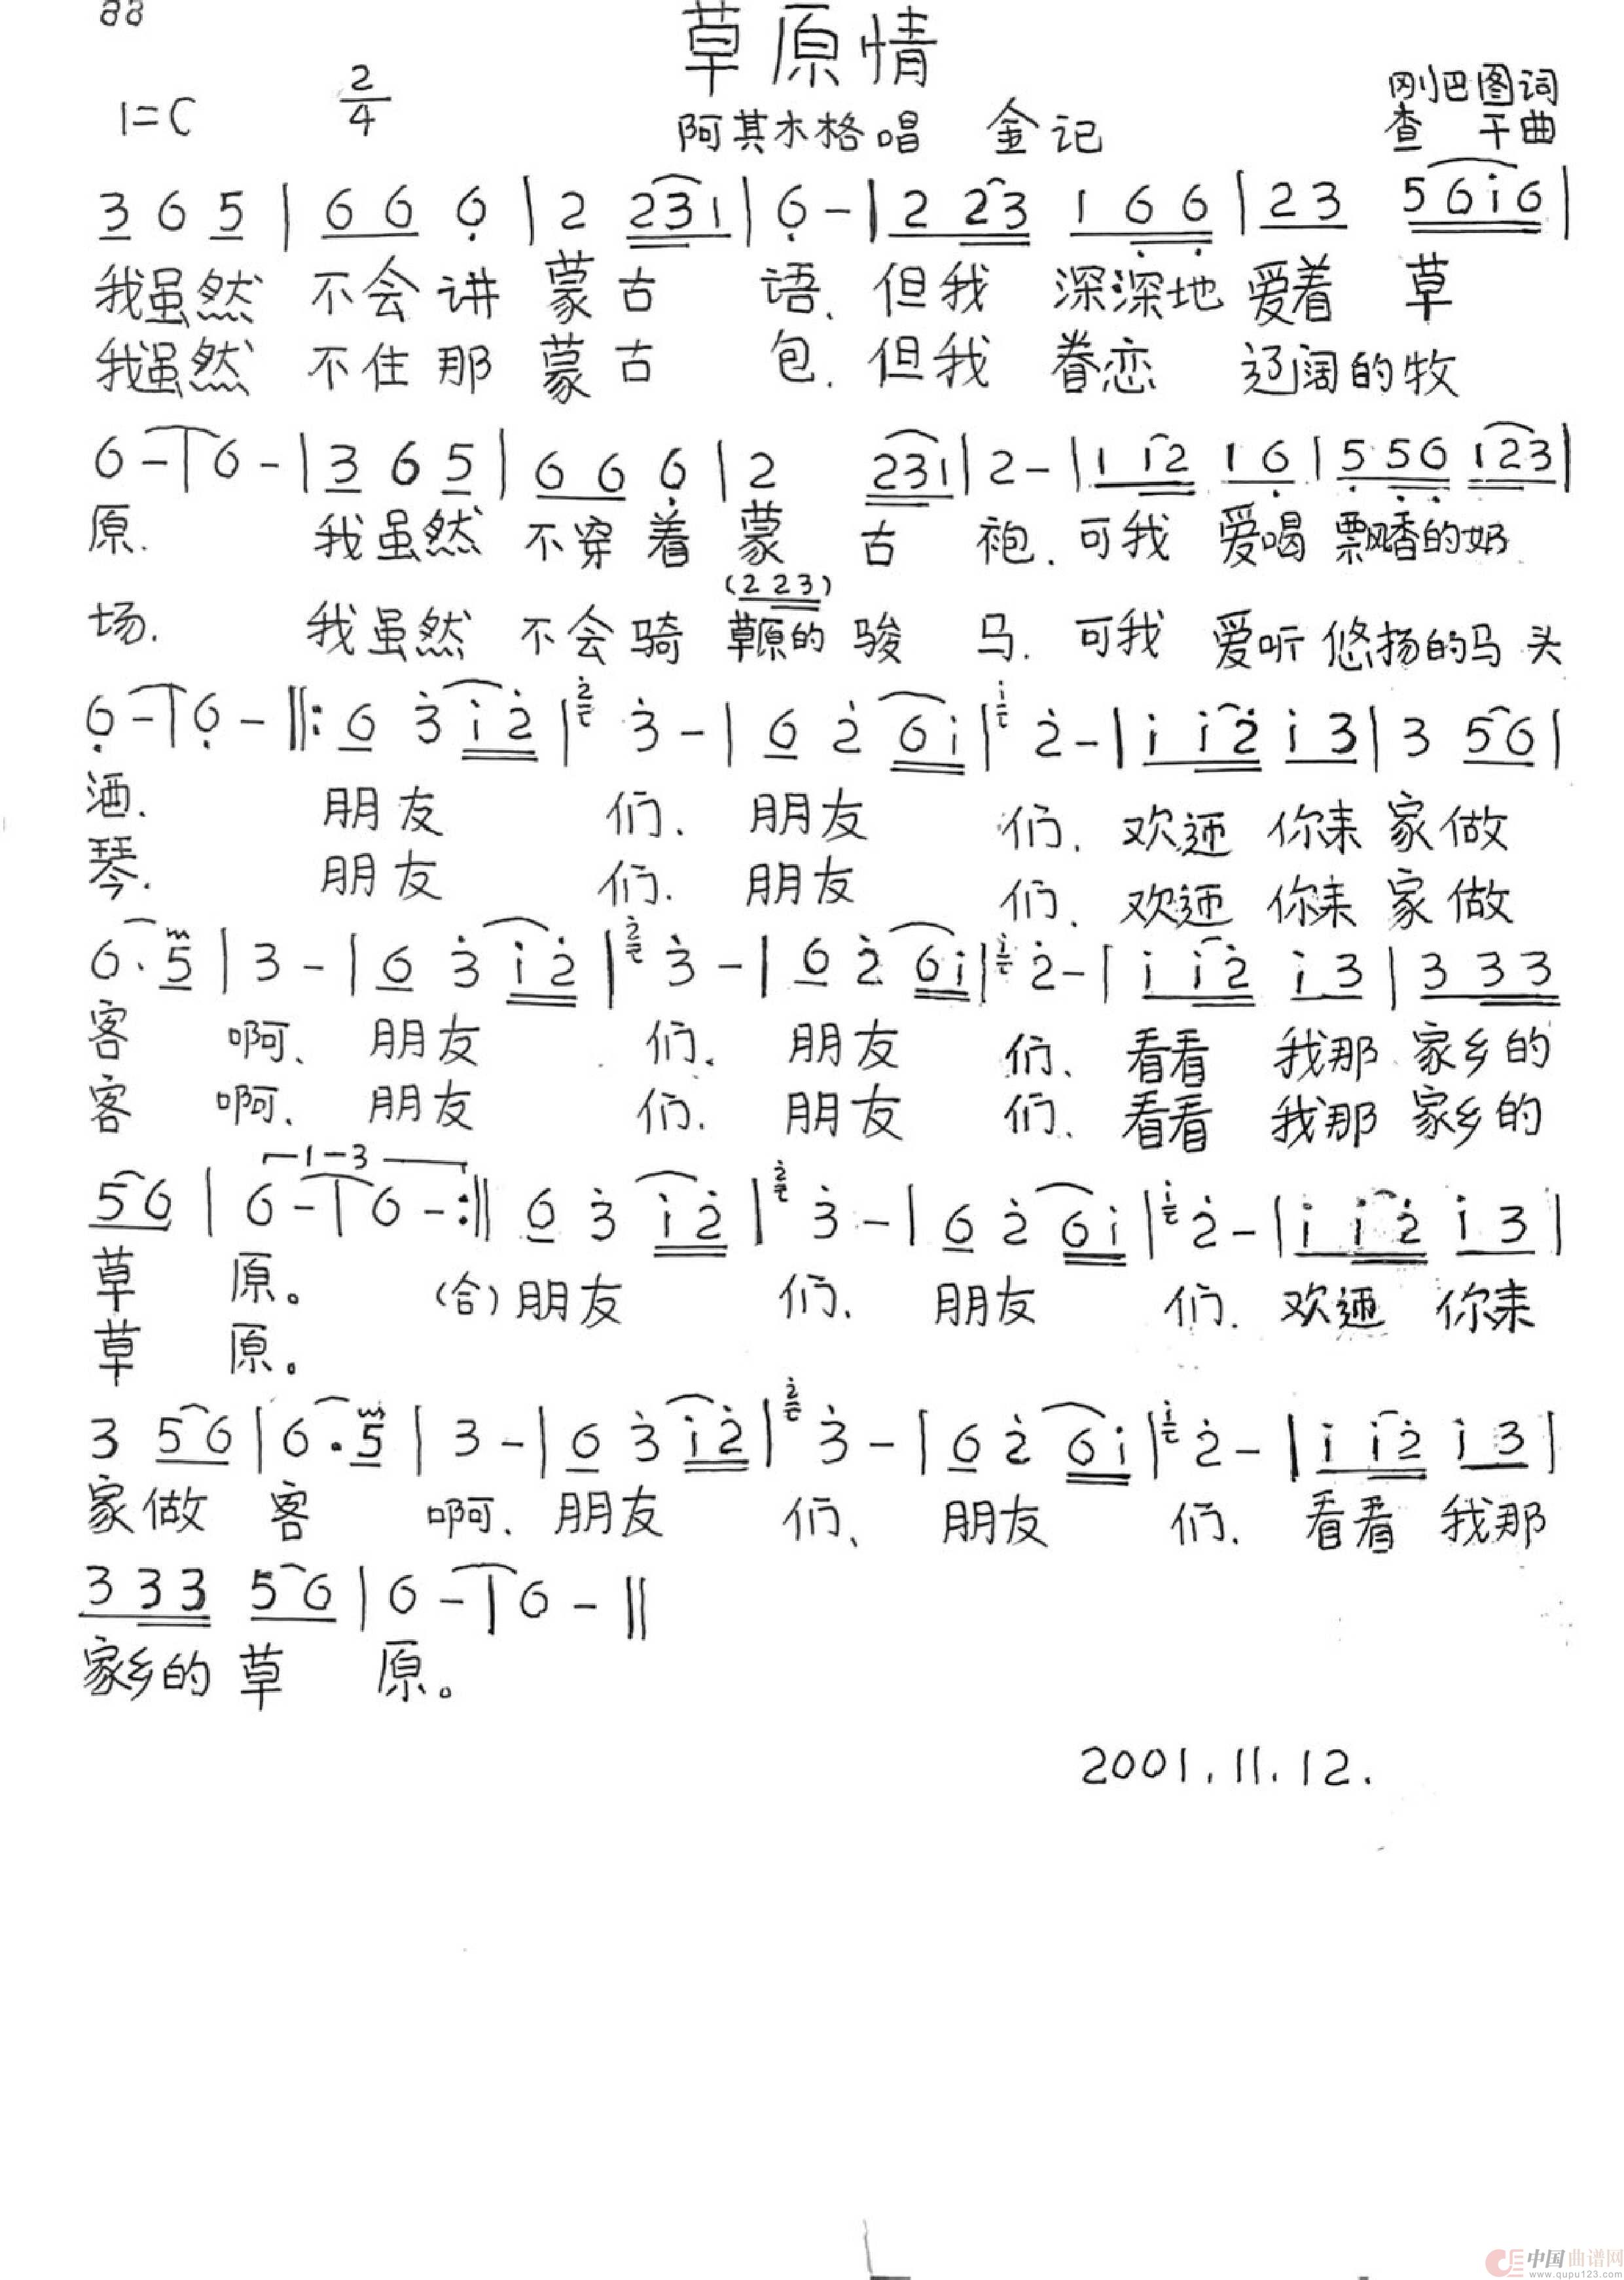 88
草原情
1=C 2/4
阿其木格唱 金记
刚巴图词
查 干曲
3 6 5 | 6 6 6̣ | 2 2 3 1 | 6̣ - | 2 2 3 1 6̣ 6̣ | 2 3 5 6 i 6 |
我虽然 不会讲 蒙古 语、但我 深深地 爱着 草
我虽然 不住那 蒙古 包、但我 眷恋 辽阔的牧
6 - | 6 - | 3 6 5 | 6 6 6̣ | 2 2 3 1 | 2 - | 1 1 2 1 6̣ | 5̣ 5̣ 6̣ 1 2 3 |
原. 我虽然 不穿着 蒙 古 袍、可我 爱喝 飘香的奶
(2 2 3)
场. 我虽然 不会骑 草原的 骏 马、可我 爱听 悠扬的马 头
6̣ - | 6̣ - ‖: 6 3̇ i 2̇ | 2̇ 3̇ - | 6 2̇ 6 i | i 2̇ - | i i 2̇ i 3 | 3 5 6 |
酒. 朋友 们、朋友 们、欢迎 你来 家做
琴. 朋友 们、朋友 们、欢迎 你来 家做
6 · 5 | 3 - | 6 3̇ i 2̇ | 2̇ 3̇ - | 6 2̇ 6 i | i 2̇ - | i i 2̇ i 3 | 3 3 3
客 啊、朋友 们、朋友 们、看看 我那 家乡的
客 啊、朋友 们、朋友 们、看看 我那 家乡的
1-3
5 6 | 6 - | 6 - :‖ 6 3̇ i 2̇ | 2̇ 3̇ - | 6 2̇ 6 i | i 2̇ - | i i 2̇ i 3 |
草 原。 (合)朋友 们、朋友 们、欢迎 你来
草 原。
3 5 6 | 6 · 5 | 3 - | 6 3̇ i 2̇ | 2̇ 3̇ - | 6 2̇ 6 i | i 2̇ - | i i 2̇ i 3 |
家做 客 啊、朋友 们、朋友 们、看看 我那
3 3 3 5 6 | 6 - | 6 - ‖
家乡的 草 原。
2001.11.12.
中国曲谱网
www.qupu123.com